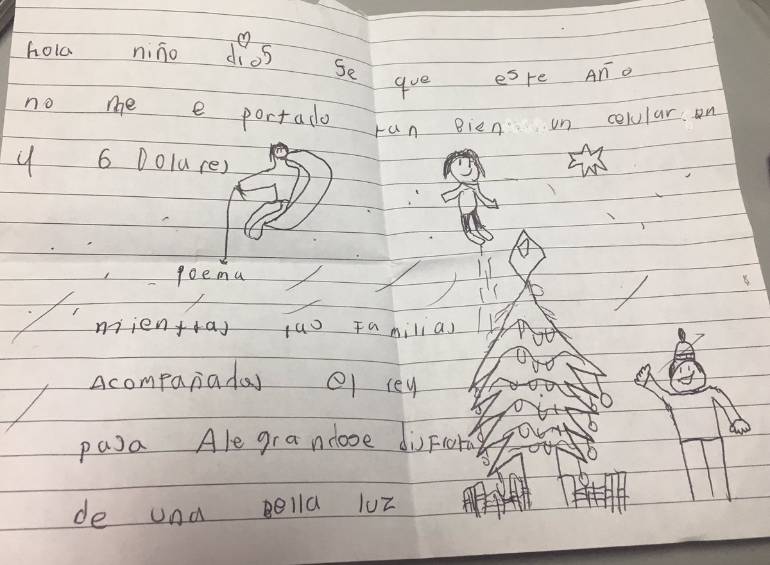 hola niño dios Se que este Año
no me e portado tan Bien un celular un
y 6 Dolares
poema
mientras las Familias
Acompañadas el rey
pasa Alegrandose disfruta
de una Bella luz